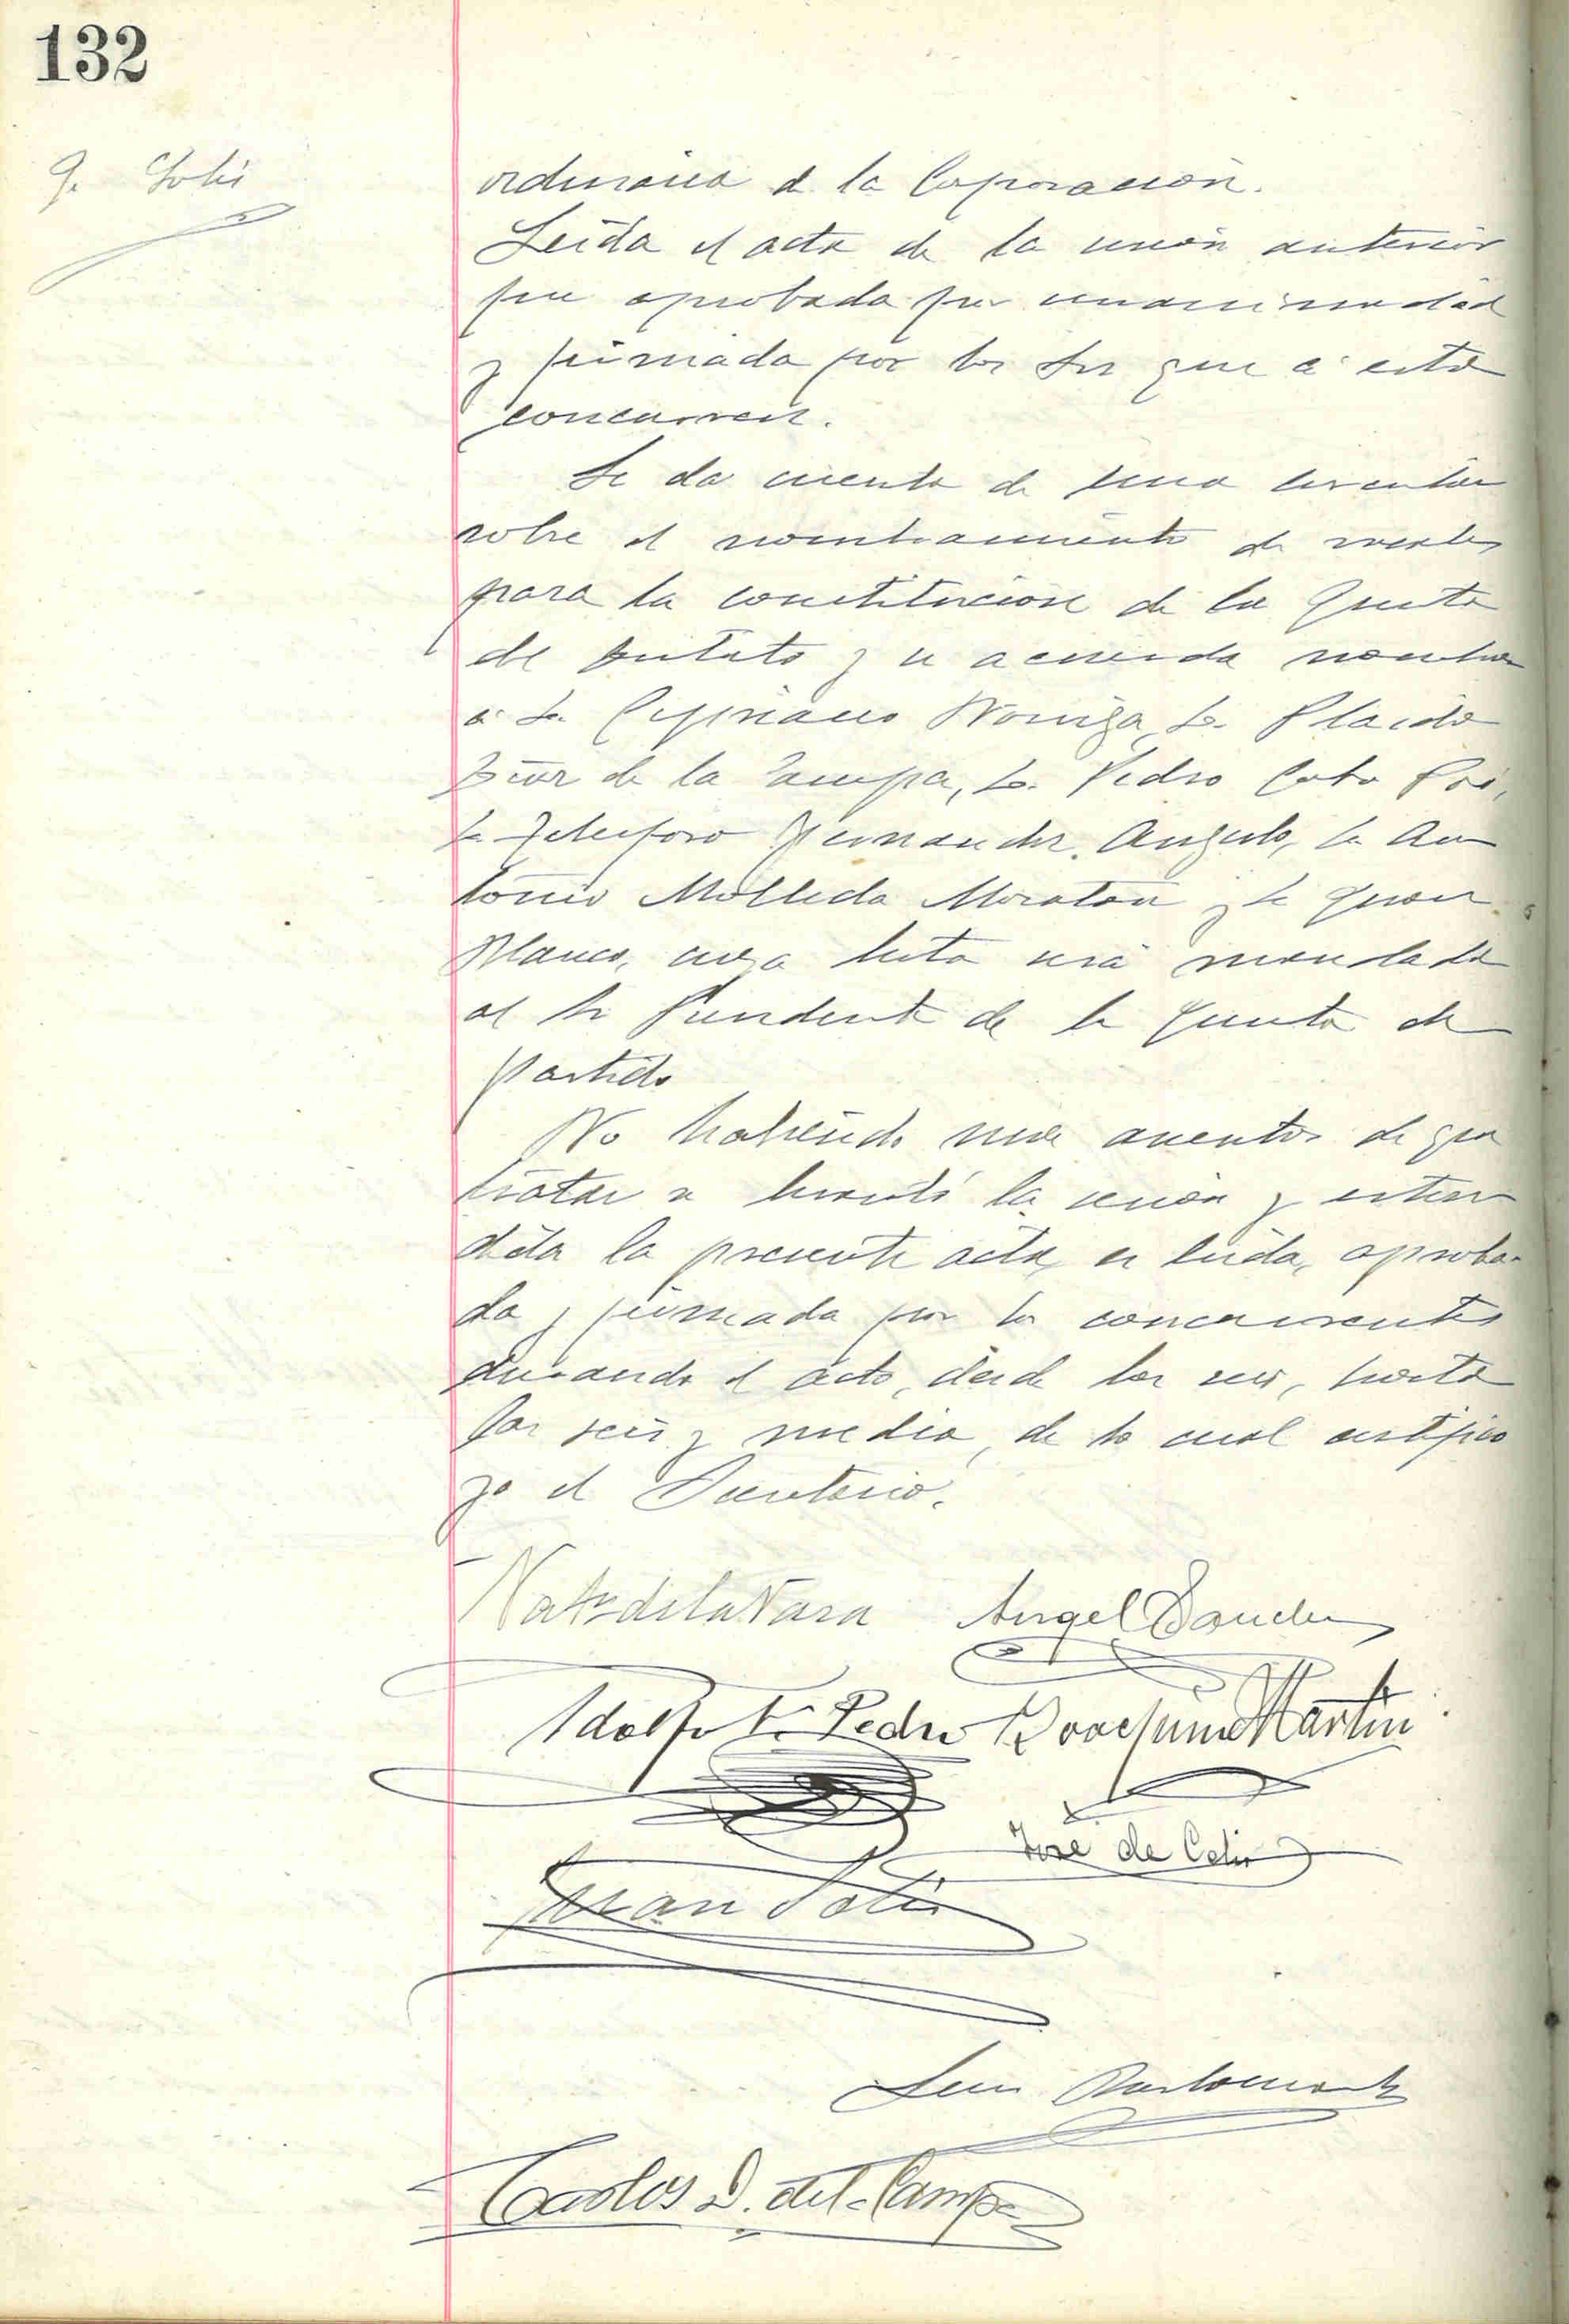 132
J. Solis
ordinaria de la Corporación.
Leida el acta de la sesión anterior
fue aprobada por unanimidad
y firmada por los Sres que á esta
concurren.
Se da cuenta de una circular
sobre el nombramiento de vocales
para la constitución de la Junta
del partido y se acuerda nombrar
á D. Cipriano Noriega, D. Placido
Diaz de la Pampa, D. Pedro Coto
D. Telesforo Fernandez Angulo, D. An
tonio Molleda Moratón y D. Juan
Blanco, cuya lista será mandada
al Sr Presidente de la Junta de
Partido
No habiendo mas asuntos de que
tratar se levantó la sesión y exten
dida la presente acta, es leida, aproba-
da y firmada por los concurrentes
durando el acto, desde las seis, hasta
las seis y media, de lo cual certifico
yo el Secretario.
de la Vara Angel Sanchez
Adolfo F. Pedro Joaquin Martin
Jose de Celis
Juan Solis
Luis
Carlos D. del Campo